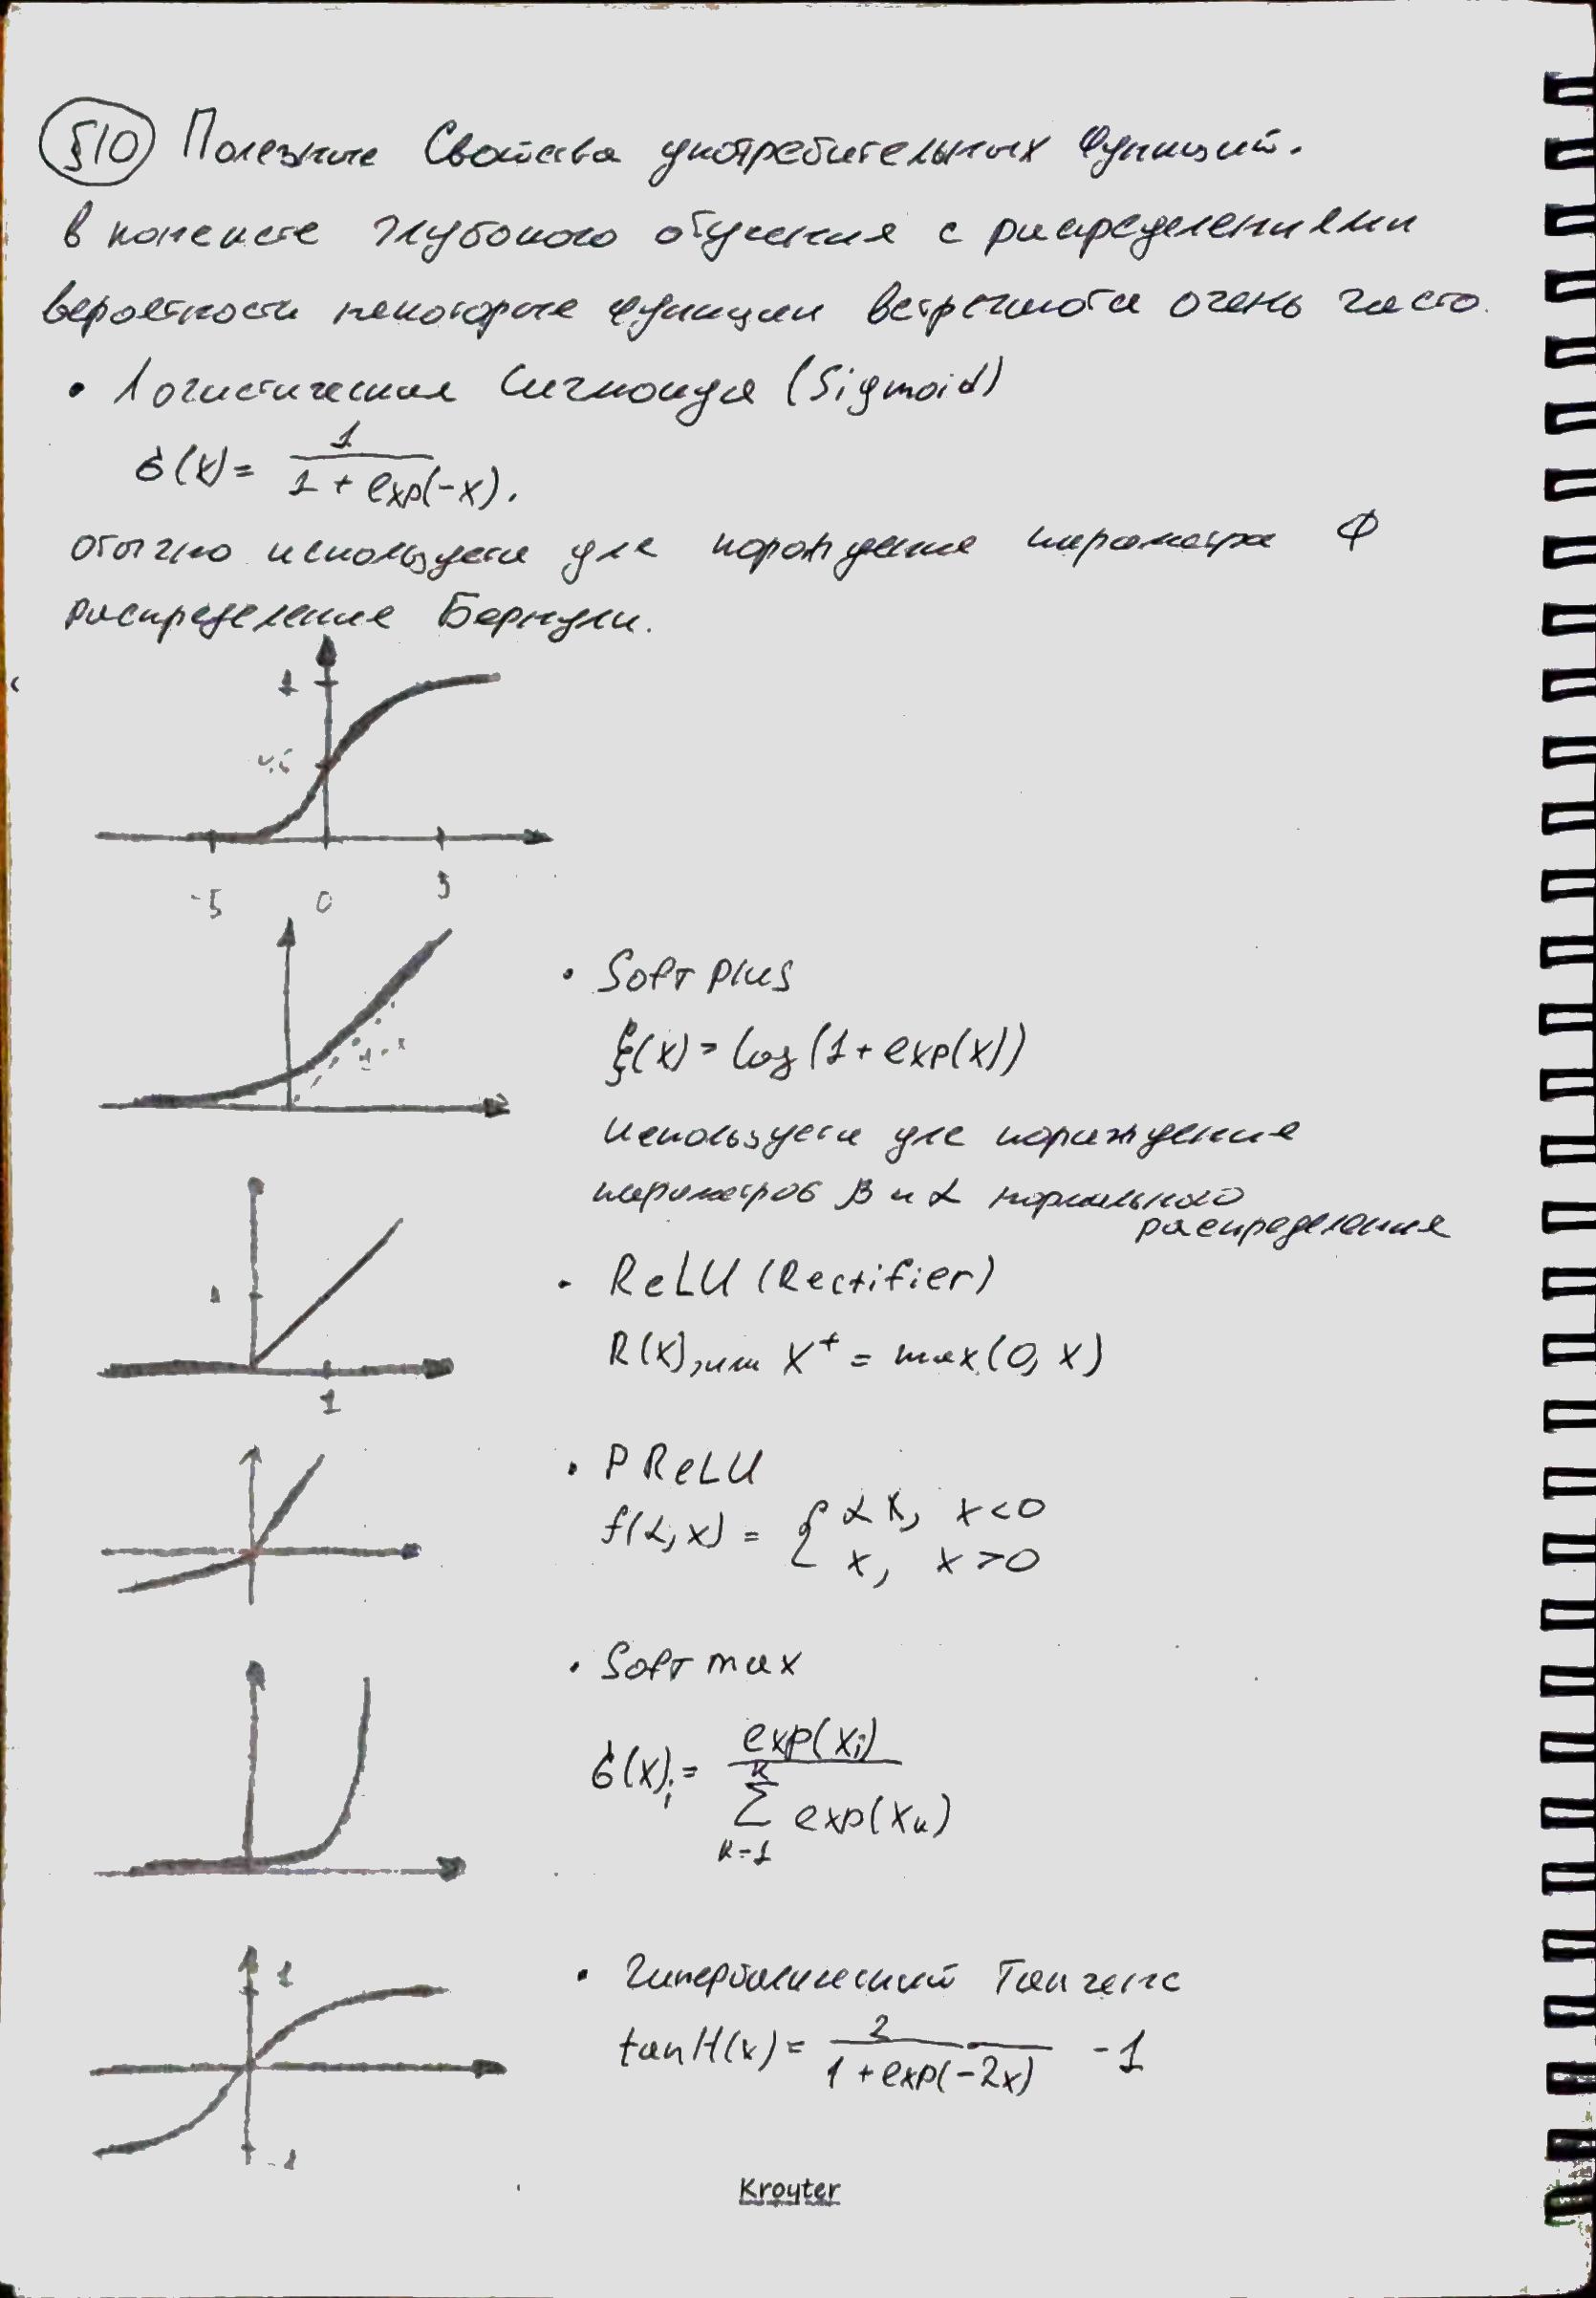 §10 Полезные Свойства употребительных Функций.
в контексте глубокого обучения с распределениями
вероятности некоторые функции встречаются очень часто.
• Логистическая Сигмоида (Sigmoid)
σ(x) = 1 / (1 + exp(-x)).
Обычно используется для порождения параметра Φ
распределения Бернули.
1
-5 0 5
• Soft plus
ξ(x) = log(1 + exp(x))
Используется для порождения
параметров β и α нормального
распределения
• ReLU (Rectifier)
R(x), или x⁺ = max(0, x)
1
1
• PReLU
f(α, x) = { αx, x<0
x, x>0
• Softmax
σ(x)i = exp(xi) / K Σ k=1 exp(xk)
• Гиперболический Тангенс
tanH(x) = 2 / (1 + exp(-2x)) - 1
1
-1
Kroyter